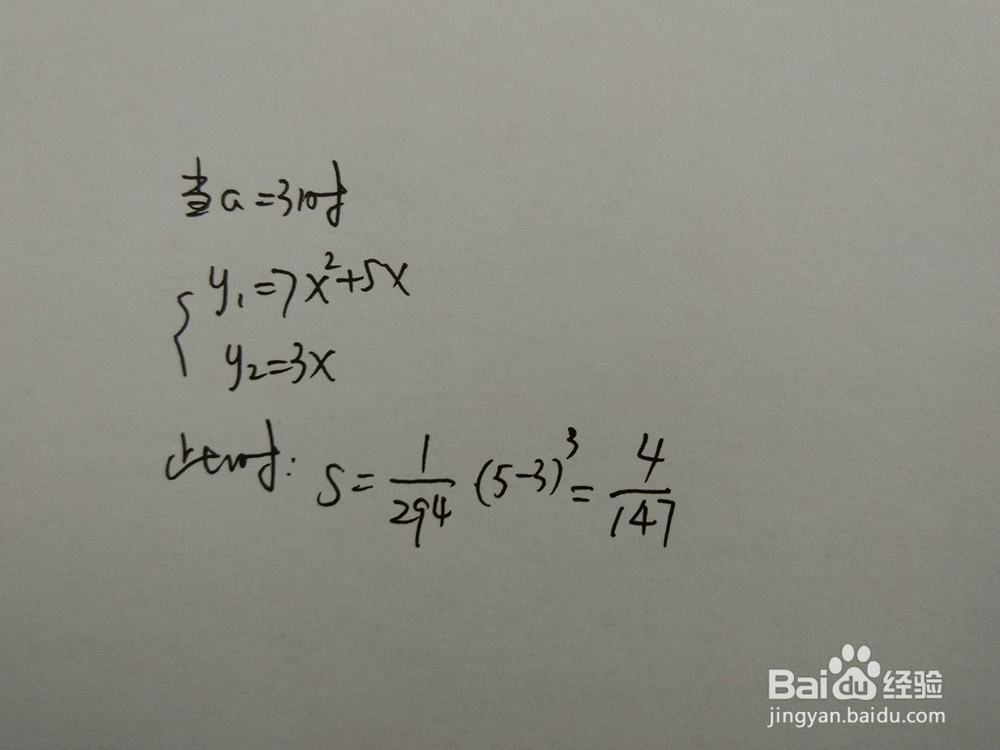 当a=3时
y₁=7x²+5x
y₂=3x
此时: S=1/294 (5-3)³=4/147
Baidu经验
jingyan.baidu.com